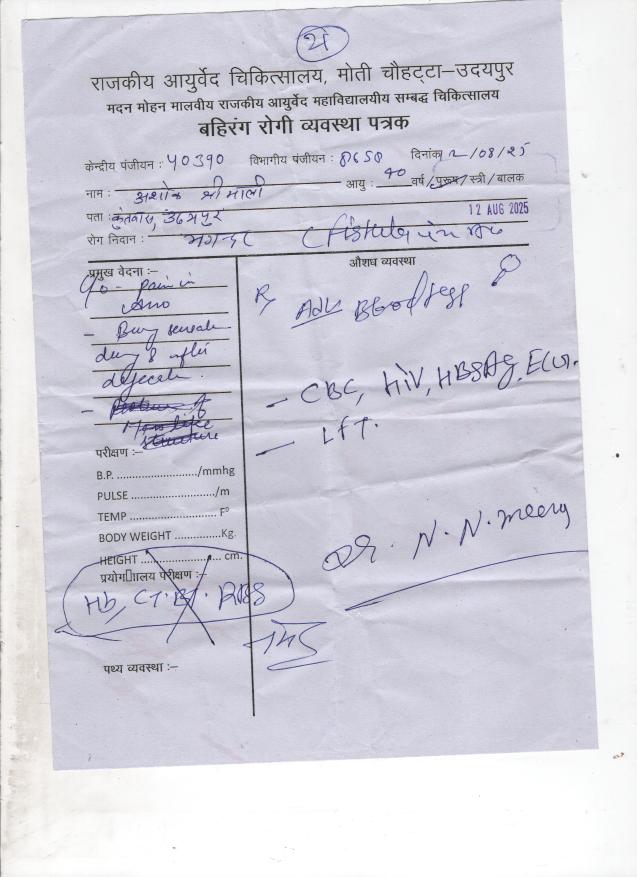 राजकीय आयुर्वेद चिकित्सालय, मोती चौहट्टा–उदयपुर
मदन मोहन मालवीय राजकीय आयुर्वेद महाविद्यालयीय सम्बद्ध चिकित्सालय
बहिरंग रोगी व्यवस्था पत्रक
केन्द्रीय पंजीयन : 40390 विभागीय पंजीयन : दिनांक 12/08/25
नाम : अशोक श्रीमाली आयु : 40 वर्ष / पुरूष / स्त्री / बालक
पता : उदयपुर 12 AUG 2025
रोग निदान : भगन्दर (Fistula in Ano
प्रमुख वेदना :–
C/o - Pain in
Ano
- Burning
during & after
defecate.
औशध व्यवस्था
Rx Adv Blood
- CBC, HIV, HBSAg, ECG.
- LFT.
परीक्षण :–
B.P. ......................../mmhg
PULSE ........................../m
TEMP ........................... F⁰
BODY WEIGHT ..............Kg.
HEIGHT ........................ cm.
प्रयोग ालय परीक्षण :–
Hb, CT. BT. RBS
Dr. N. N. Meena
पथ्य व्यवस्था :–